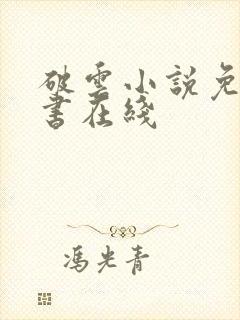 破雲小説免
書在綫
馮光青